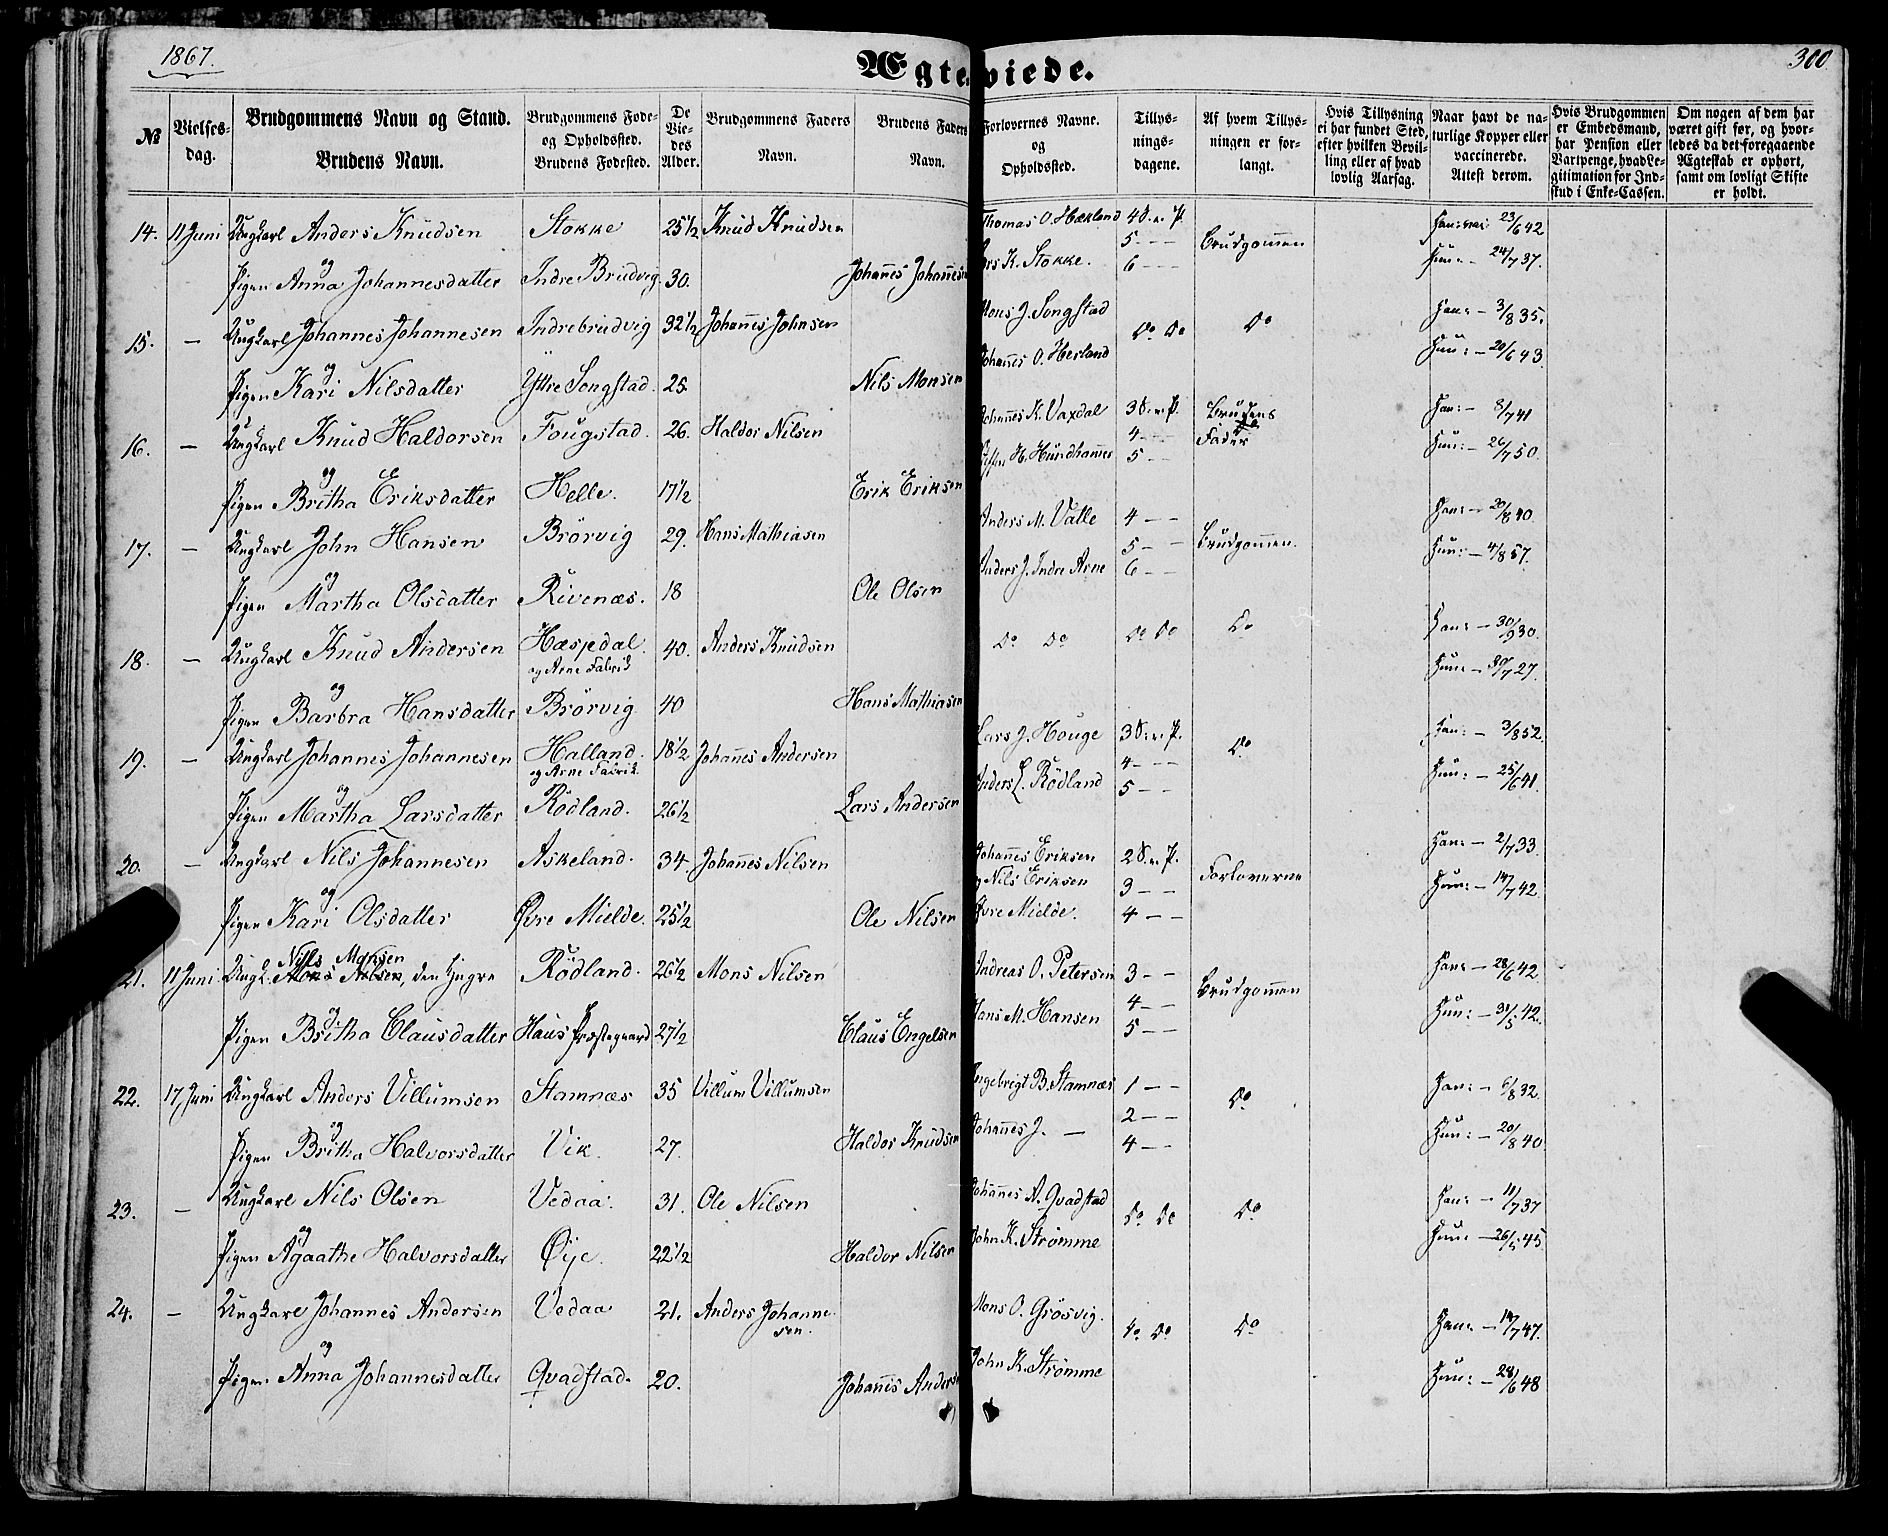 1867.
Ægteviede.
300
№
Vielses-
dag.
Brudgommens Navn og Stand.
Brudens Navn.
Brudgommens Føde-
og Opholdssted.
Brudens Fødested.
De
Vie-
des
Alder.
Brudgommens Faders
Navn.
Brudens Faders
Navn.
Forlovernes Navne.
og
Opholdssted.
Tillys-
nings-
dagene.
Af hvem Tillys-
ningen er for-
langt.
Hvis Tillysning
ei har fundet Sted,
efter hvilken Bevil-
ling eller af hvad
lovlig Aarsag.
Naar havt de na-
turlige Kopper eller
vaccinerede.
Attest derom.
Hvis Brudgommen
er Embedsmand,
har Pension eller
Vartpenge, hvad Le-
gitimation for Ind-
skud i Enke-Cassen.
Om nogen af dem har
været gift før, og hvor-
ledes da det foregaaende
Ægteskab er ophørt,
samt om lovligt Skifte
er holdt.
14. 11 Juni Ungkarl Anders Knudsen Stokke 25 1/2 Knud Knudsen Thomas O. Hækland 4 S. e. P. Brudgommen Han: vac: 23/6 42
og
Pigen Anna Johannesdatter Indre Brudvig 30. Johannes Johannesen K. Stokke. 5 - - 6 - - Hun: - 24/7 37.
15. - Ungkarl Johannes Johannesen Indrebrudvig 32 1/2 Johannes Johnsen Mons J. Songstad Do Do Do Han: - 3/8 35.
og
Pigen Kari Nilsdatter Yttre Songstad. 25 Nils Monsen Johannes O. Herland Hun: - 20/6 43.
16. - Ungkarl Knud Haldorsen Fougstad. 26. Haldor Nilsen Johannes K. Vaxdal 3 S. e. P. Brudens Fader Han: - 8/7 41
og
Pigen Britha Eriksdatter Helle. 17 1/2 Erik Eriksen H. Hundhammer 4 - - 5 - - Hun: - 26/7 50.
17. - Ungkarl John Hansen Brørvig 29. Hans Mathiasen Anders M. Valle 4 - - Brudgommen. Han: - 20/8 40.
og
Pigen Martha Olsdatter Rivenæs. 18 Ole Olsen Anders J. Indre Arne 5 - - 6 - - Hun: - 4/8 57.
18. - Ungkarl Knud Andersen Hæspdal. og Arne Fabrik 40. Anders Knudsen Do Do Do Do Do Han: - 30/9 30.
og
Pigen Barbra Hansdatter Brørvig 40 Hans Mathiasen Hun: - 30/7 27.
19. - Ungkarl Johannes Johannesen Halland. og Arne Fabrik 18 1/2 Johannes Andersen Lars J. Houge 3 S. e. P. Do Han: - 3/8 52.
og
Pigen Martha Larsdatter Rødland. 26 1/2 Lars Andersen Anders L. Rødland 4 - - 5 - - Hun: - 25/6 41.
20. - Ungkarl Nils Johannesen Askeland. 34. Johannes Nilsen Johannes Eriksen 2 S. e. P. Forloverne Han: - 2/7 33.
og Nils Eriksen 3 - -
Pigen Kari Olsdatter Øvre Mielde. 25 1/2 Ole Nilsen Øvre Mielde. 4 - - Hun: - 14/7 42.
Nils Monsen
21. 11 Juni Ungk. Mons Nilsen, den Yngre Rødland. 26 1/2 Mons Nilsen Andreas O. Petersen 3 - - Brudgommen Han: - 28/6 42.
og
Pigen Britha Clausdatter Haus Præstegaard 27 1/2 Claus Engelsen Hans M. Hansen 4 - - 5 - - Hun: - 31/5 42.
22. 17 Juni Ungkarl Anders Villumsen Stamnæs 35 Villum Villumsen Ingebrigt B. Stamnæs 1 - - Do Han: - 6/8 32.
og
Pigen Britha Halvorsdatter Vik. 27. Haldor Knudsen Johannes J. - 2 - - 4 - - Hun: - 20/8 40.
23. - Ungkarl Nils Olsen Vedaa. 31. Ole Nilsen Johannes A. Qvadstad Do Do Do Han: - 11/7 37
og
Pigen Agaathe Halvorsdatter Øye. 22 1/2 Haldor Nilsen John K. Strømme Hun: - 26/5 45.
24. - Ungkarl Johannes Andersen Vedaa 21. Anders Johannesen. Mons O. Grøsvig. Do Do Do Han: - 14/7 47.
og
Pigen Anna Johannesdatter Qvadstad. 20. Johannes Andersen John K. Strømme Hun: - 28/6 48